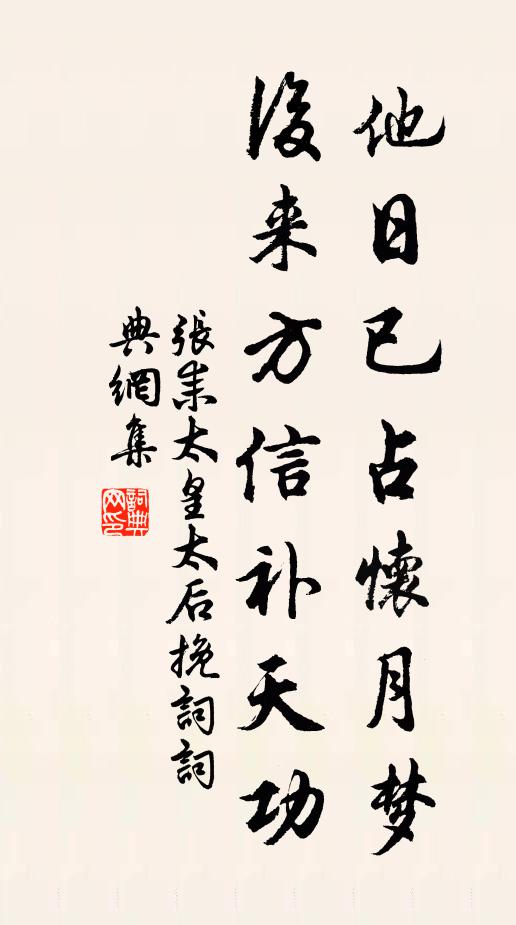 他日已占懷月梦
後来方信补天功
張耒太皇太后挽詞詞
典網集
詞典网印